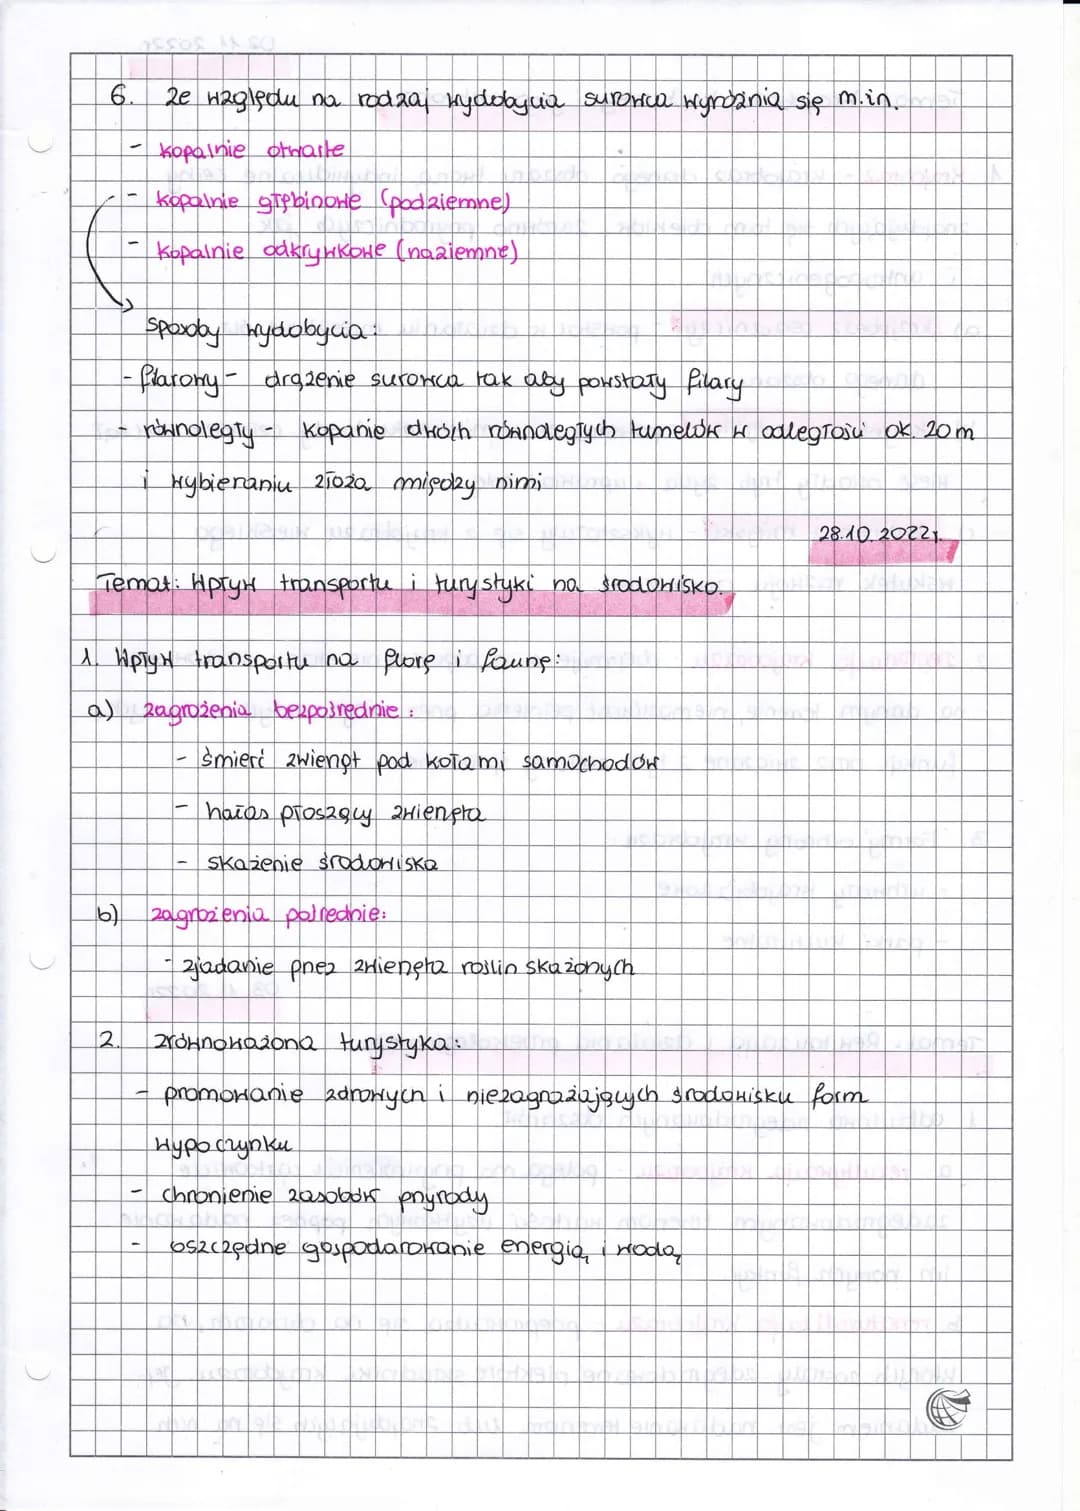 6. Ze względu na rodzaj wydobycia surowca wyróżnia się m.in.
- kopalnie otwarte
- kopalnie głębinowe (podziemne)
- kopalnie odkrywkowe (naziemne)
sposoby wydobycia:
- filarowy - drążenie surowca tak aby powstały filary
- równoległy - kopanie dwóch równoległych tumelów w odległości ok. 20 m
i wybieraniu złoża między nimi
28.10.2022r.
Temat: Wpływ transportu i turystyki na środowisko.
1. Wpływ transportu na florę i faunę:
a) zagrożenia bezpośrednie:
- śmierć zwierząt pod kołami samochodów
- hałas płoszący zwierzęta
- skażenie środowiska
b) zagrożenia pośrednie:
- zjadanie przez zwierzęta roślin skażonych
2. zrównoważona turystyka:
- promowanie zdrowych i niezagrażających środowisku form
wypoczynku
- chronienie zasobów przyrody
- oszczędne gospodarowanie energią i wodą